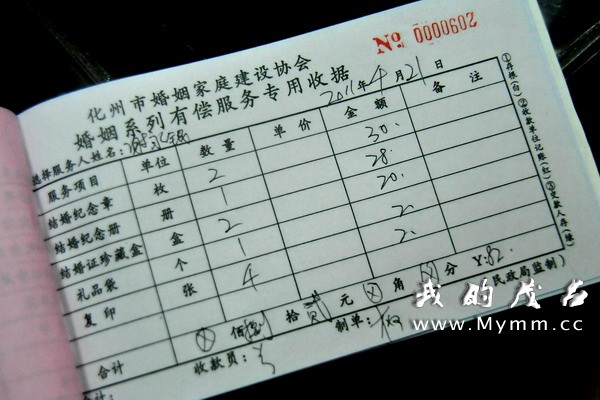 № 0000602
化州市婚姻家庭建设协会
婚姻系列有偿服务专用收据
2011年4月21日
选择服务人姓名:
服务项目 单位 数量 单价 金额 备注
结婚纪念章 枚 2 30.
结婚纪念册 册 1 28.
结婚证珍藏盒 盒 2 20.
礼品袋 个 1 2.
复印 张 4 2.
合计 ⊗ 佰 捌 拾 贰 元 ⊗ 角 ⊗ 分 ¥:82.
收款员: 制单:
民政局监制)
①存根(白) ②收款单位记账(红) ③交款人存(绿)
我的茂名
www.Mymm.cc